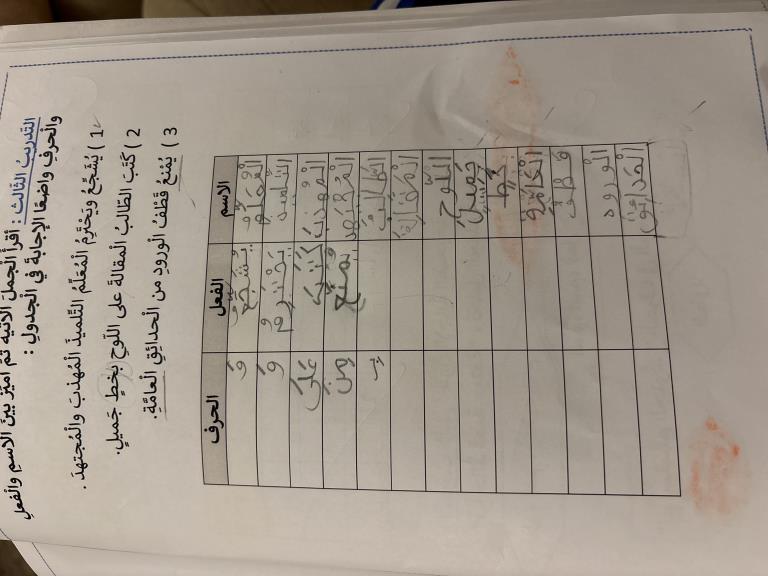 التدريب الثالث : أقرأ الجمل الآتية ثم أميز بين الاسم والفعل
والحرف واضعا الإجابة في الجدول :
1 ) يُشَجِّعُ ويَحْتَرِمُ الْمُعَلِّمُ التِّلميذَ الْمُهَذبَ والْمُجتهدَ .
2 ) كَتَبَ الطّالبُ الْمقالةَ على اللّوحِ بخطٍ جَميلٍ.
3 ) يُمْنَعُ قَطْفُ الْورودِ من الْحدائقِ الْعامَّةِ.
الاسم الفعل الحرف
الْمُعَلِّمُ يُشَجِّعُ وَ
التِّلميذَ يَحْتَرِمُ وَ
الْمُهَذبَ كَتَبَ عَلَى
الْمُجْتَهِدَ يُمْنَعُ مِنَ
الطّالبُ بِـ
الْمَقَالَةَ
اللّوح
جَمِيلٍ
خطٍ
الْعَامَّةِ
قَطْفُ
الْورود
الْحَدَائِقِ